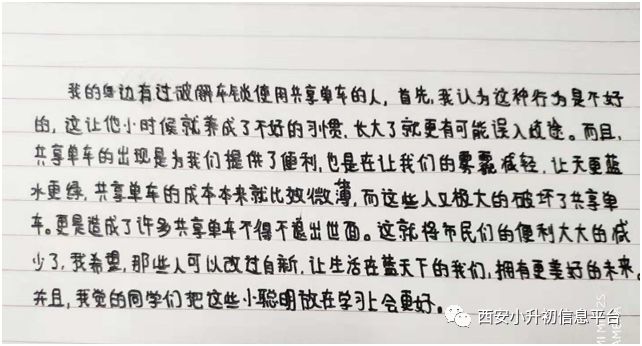 我的身边有过破解车锁使用共享单车的人，首先，我认为这种行为是不好
的，这让他小时候就养成了不好的习惯，长大了就更有可能误入歧途。而且，
共享单车的出现是为我们提供了便利，也是在让我们的雾霾减轻，让天更蓝
水更绿，共享单车的成本本来就比较微薄，而这些人又极大的破坏了共享单
车。更是造成了许多共享单车不得不退出世面。这就将市民们的便利大大的减
少了，我希望，那些人可以改过自新，让生活在蓝天下的我们，拥有更美好的未来。
并且，我觉的同学们把这些小聪明放在学习上会更好。
西安小升初信息平台